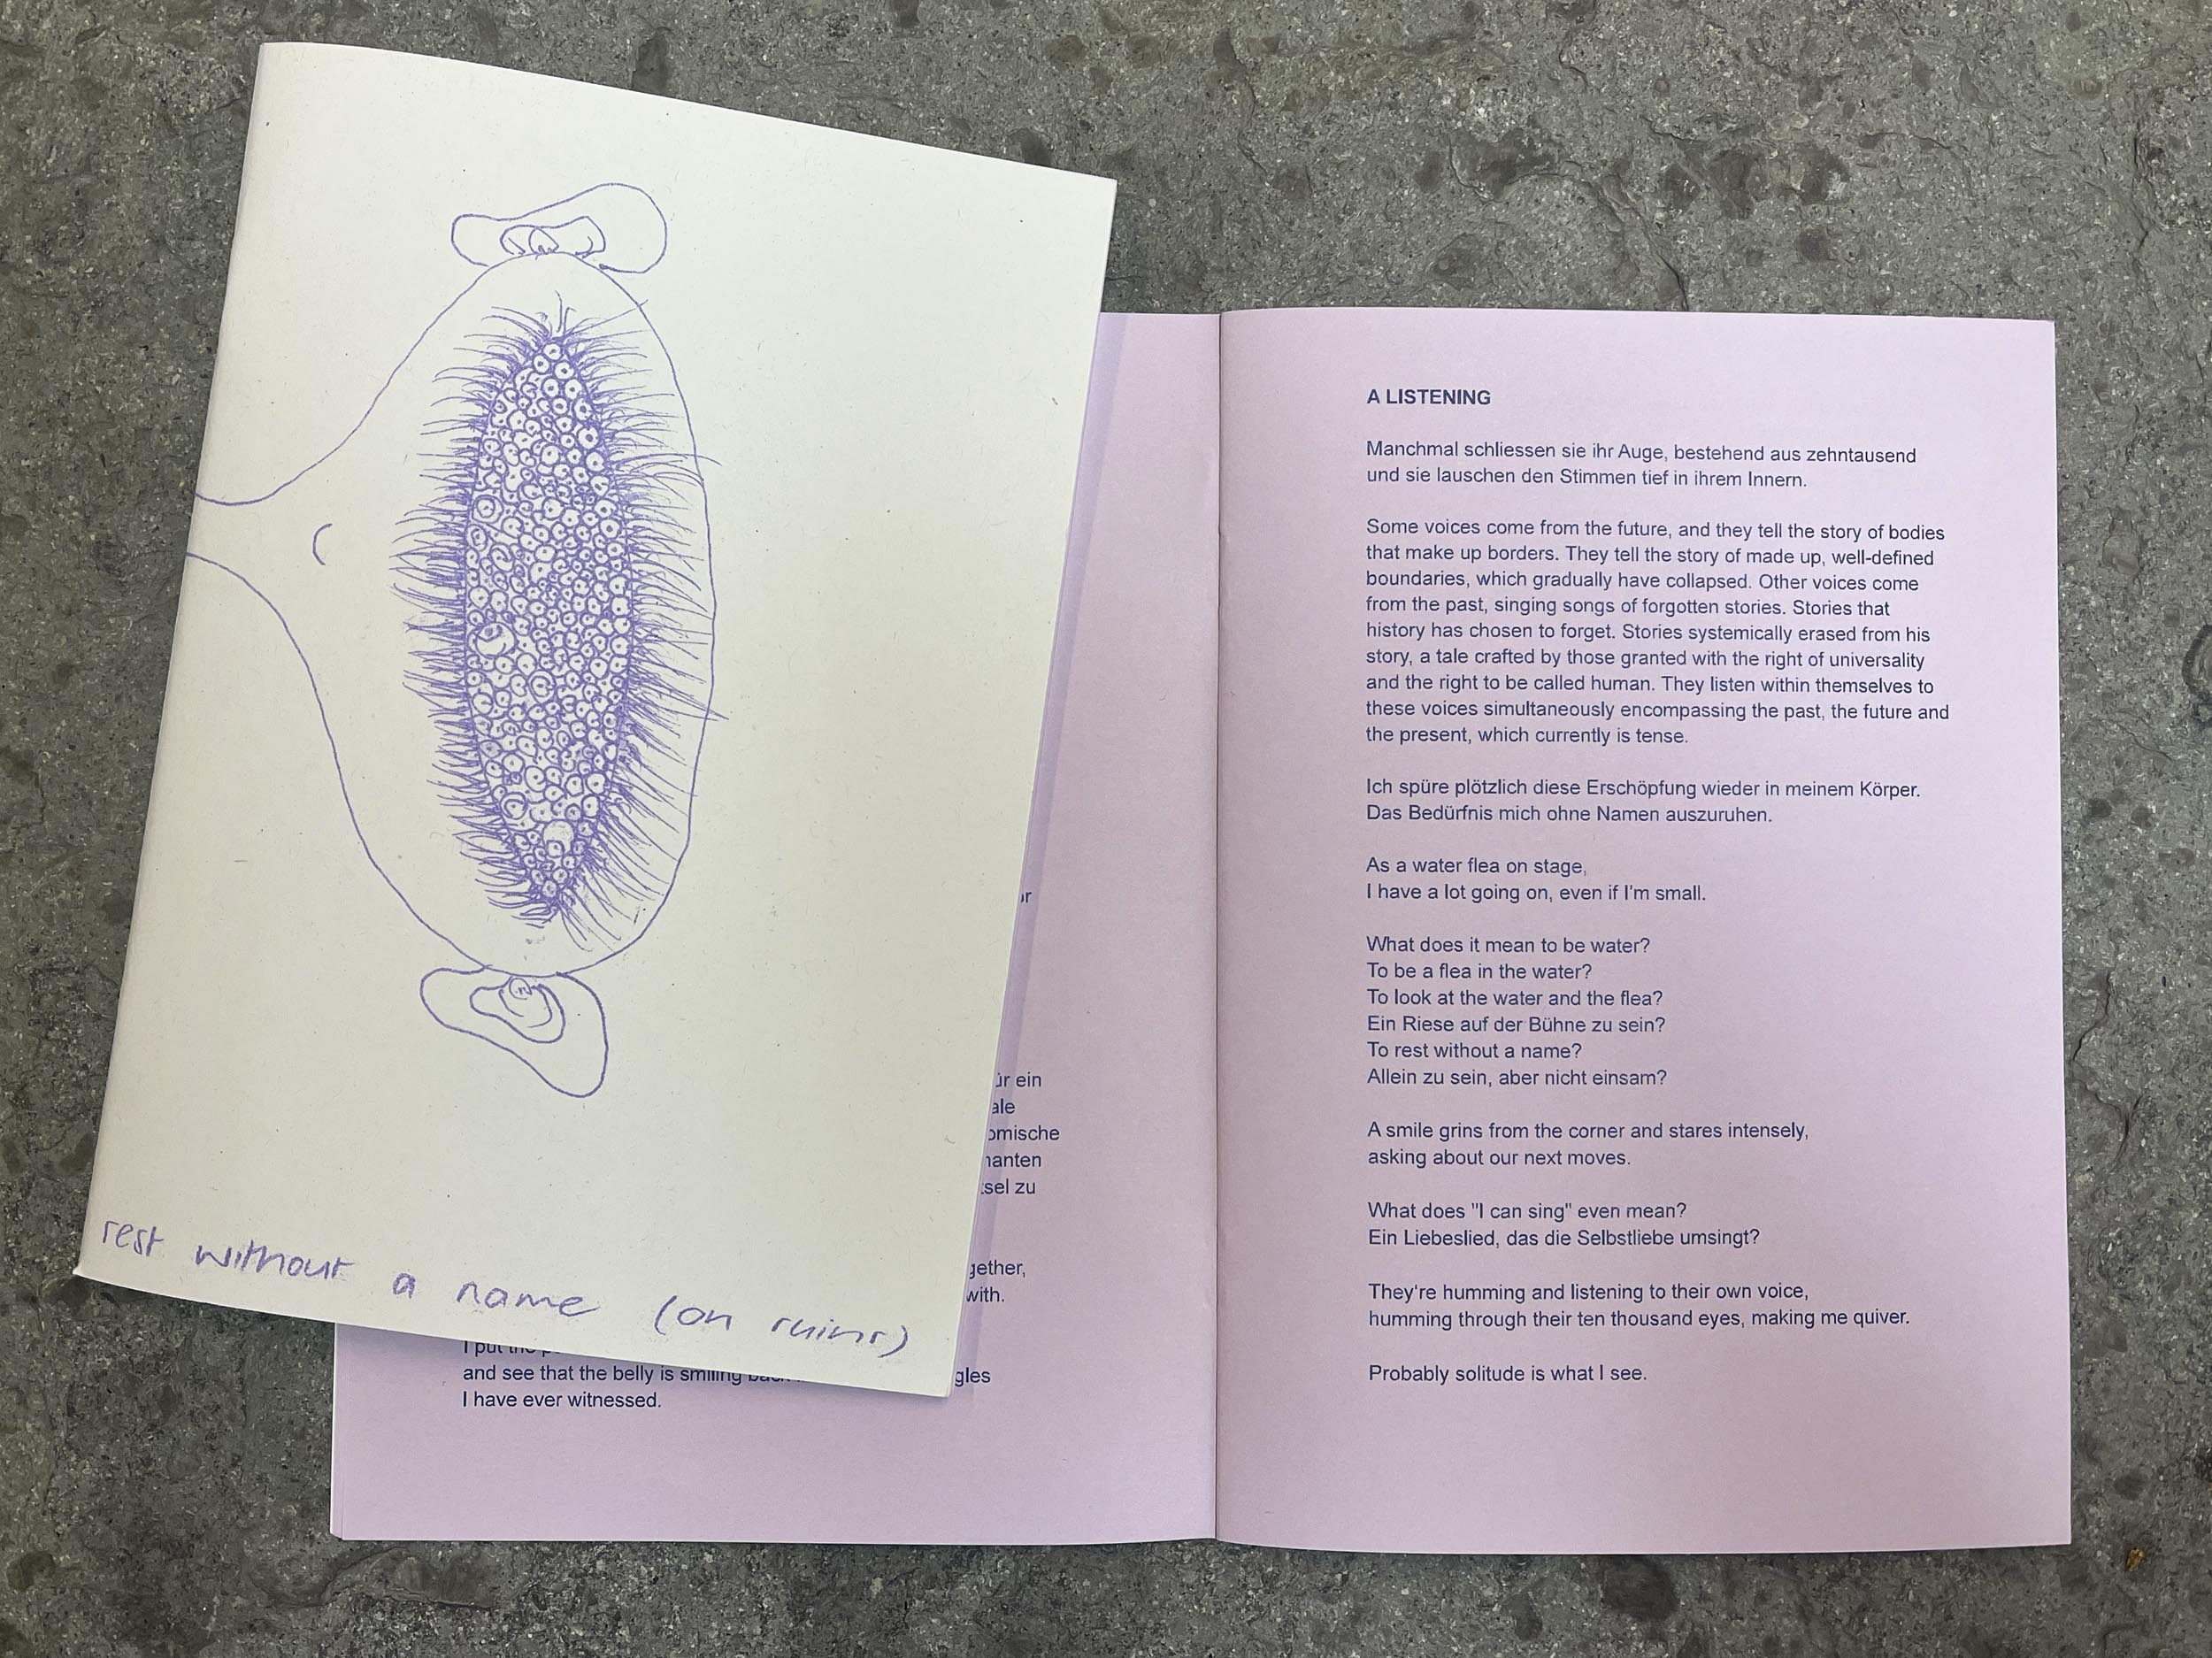 rest without a name (on ruins)
ür ein
ale
omische
anten
sel zu
gether,
with.
I put the
and see that the belly is smiling back
gles
I have ever witnessed.
A LISTENING
Manchmal schliessen sie ihr Auge, bestehend aus zehntausend
und sie lauschen den Stimmen tief in ihrem Innern.
Some voices come from the future, and they tell the story of bodies
that make up borders. They tell the story of made up, well-defined
boundaries, which gradually have collapsed. Other voices come
from the past, singing songs of forgotten stories. Stories that
history has chosen to forget. Stories systemically erased from his
story, a tale crafted by those granted with the right of universality
and the right to be called human. They listen within themselves to
these voices simultaneously encompassing the past, the future and
the present, which currently is tense.
Ich spüre plötzlich diese Erschöpfung wieder in meinem Körper.
Das Bedürfnis mich ohne Namen auszuruhen.
As a water flea on stage,
I have a lot going on, even if I'm small.
What does it mean to be water?
To be a flea in the water?
To look at the water and the flea?
Ein Riese auf der Bühne zu sein?
To rest without a name?
Allein zu sein, aber nicht einsam?
A smile grins from the corner and stares intensely,
asking about our next moves.
What does "I can sing" even mean?
Ein Liebeslied, das die Selbstliebe umsingt?
They're humming and listening to their own voice,
humming through their ten thousand eyes, making me quiver.
Probably solitude is what I see.